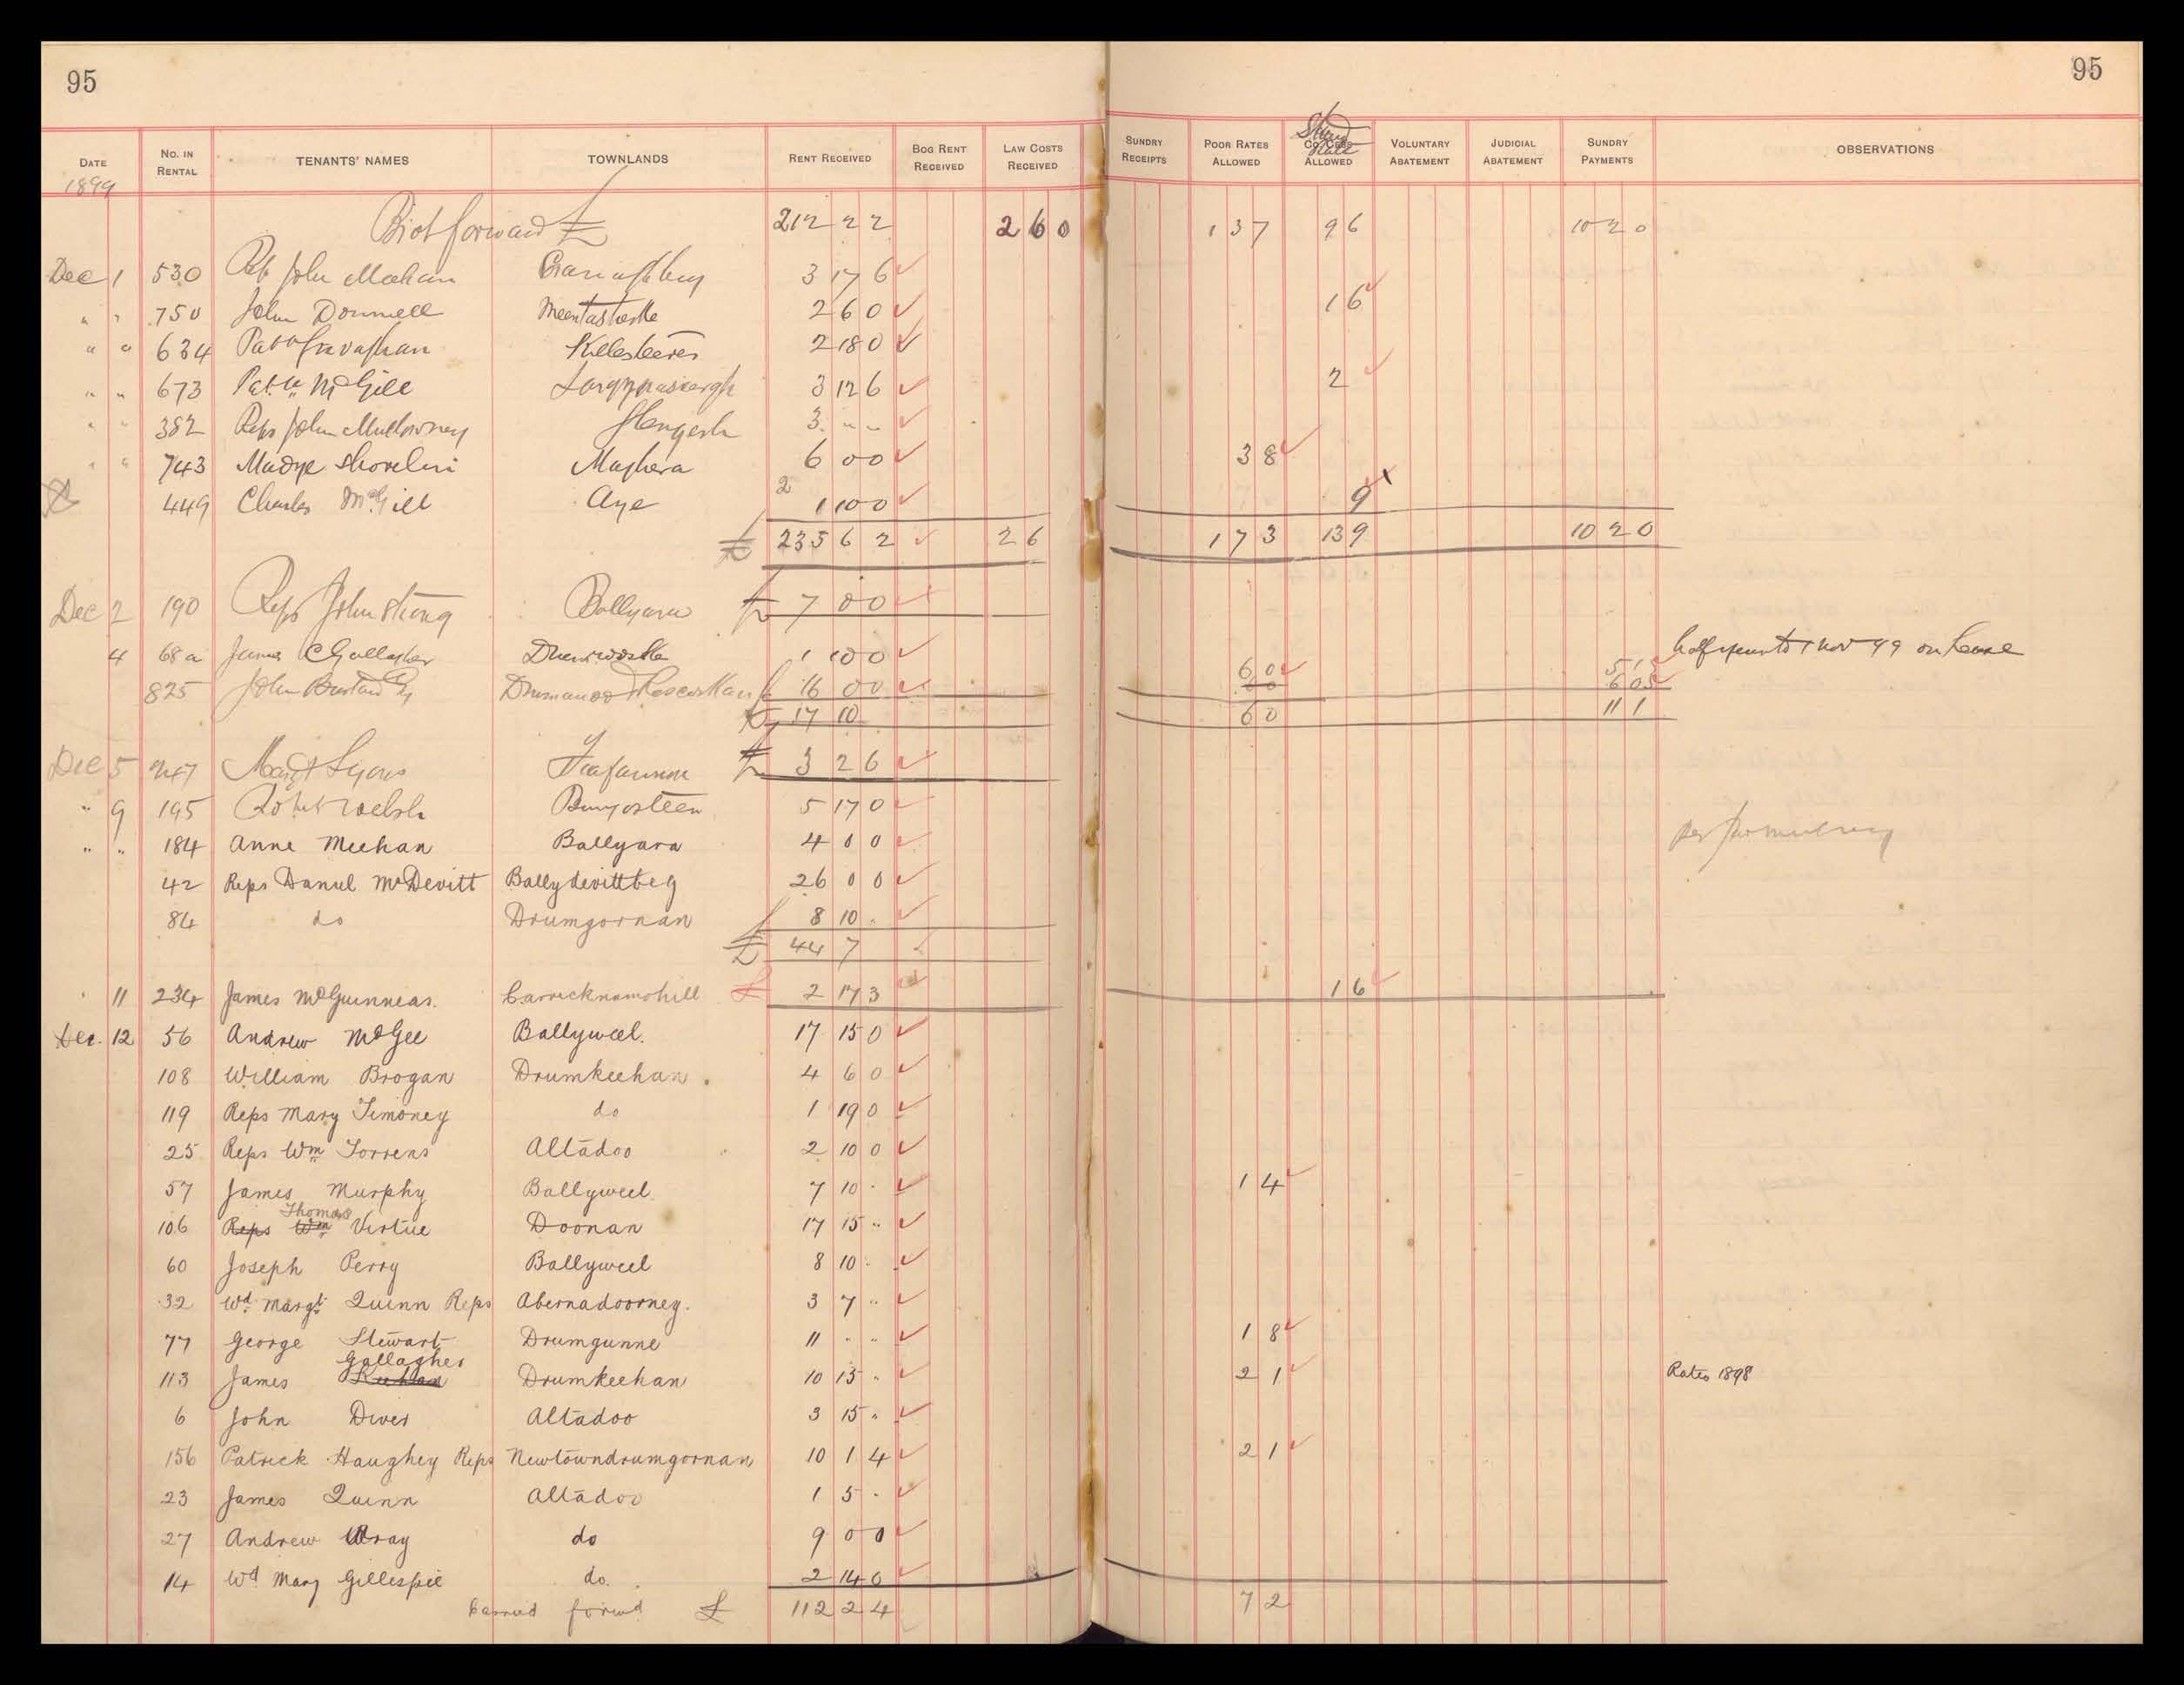 95 95
DATE NO. IN RENTAL TENANTS' NAMES TOWNLANDS RENT RECEIVED BOG RENT RECEIVED LAW COSTS RECEIVED SUNDRY RECEIPTS POOR RATES ALLOWED CO. CESS ALLOWED VOLUNTARY ABATEMENT JUDICIAL ABATEMENT SUNDRY PAYMENTS OBSERVATIONS
1899
Brot forward £ 212 2 2 2 6 0 1 3 7 9 6 10 2 0
Dec 1 530 John Meehan 3 17 6
" " 750 John Donnell 2 6 0 1 6
" " 634 2 18 0
" " 673 Patk McGill 3 12 6 2
" " 382 Reps John Mullowney 3 " "
" " 743 Madge Maghera 6 0 0 3 8
449 Charles McGill Aye 2 1 10 0 9
£ 235 6 2 2 6 1 7 3 13 9 10 2 0
Dec 2 190 Reps John Strong Ballyara £ 7 0 0
4 68a James C Gallagher 1 10 0 6 0 Half year to 1 Nov 99 on
825 John £ 16 0 0
£ 17 10 6 0 11 1
Dec 5 247 Margt Lyons £ 3 2 6
" 9 195 Robert Welsh Bunyosteen 5 17 0
" " 184 Anne Meehan Ballyara 4 0 0 per
42 Reps Daniel McDevitt Ballydevittbeg 26 0 0
84 do Drumgornan 8 10 "
£ 44 7
" 11 234 James McGuinneas. Carricknamohill £ 2 17 3 1 6
Dec. 12 56 Andrew McGee Ballyweel. 17 15 0
108 William Brogan Drumkeehan. 4 6 0
119 Reps Mary Timoney do 1 19 0
25 Reps Wm Torrens Altadoo 2 10 0
57 James Murphy Ballyweel. 7 10 " 1 4
Thomas
106 Reps Wm Virtue Doonan 17 15 "
60 Joseph Perry Ballyweel 8 10 "
32 Wd. Margt. Quinn Reps Abernadoorney. 3 7 "
77 George Stewart Drumgunne 11 " " 1 8
Gallagher
113 James Keehan Drumkeehan 10 15 " 2 1 Rates 1898
6 John Diver Altadoo 3 15 "
156 Patrick Haughey Reps Newtowndrumgornan 10 1 4 2 1
23 James Quinn Altadoo 1 5 "
27 Andrew Wray do 9 0 0
14 Wd Mary Gillespie do. 2 14 0
Carried forwd £ 112 2 4 7 2